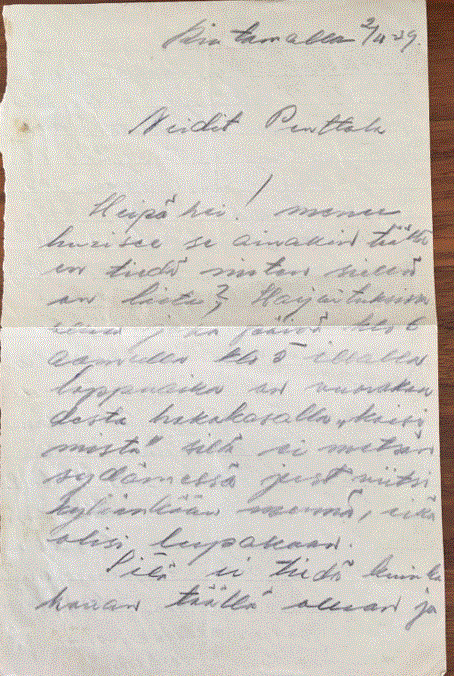 Rintamalla 2/11-39.
Neidit Penttala
Heipä hei! menee
huisee se ainakin täältä
en tiedä miten siellä
on laita? Harjoituksissa
joka päivä klo 6
aamulla klo 5 illalla
loppuaika on vuorokau
desta hakokasalla "köisi
mistä" sillä ei metsän
sydämessä just viitsi
kyliinkään mennä, eikä
olisi lupakaan.
Sitä ei tiedä kuinka
kauan täällä ollaan ja